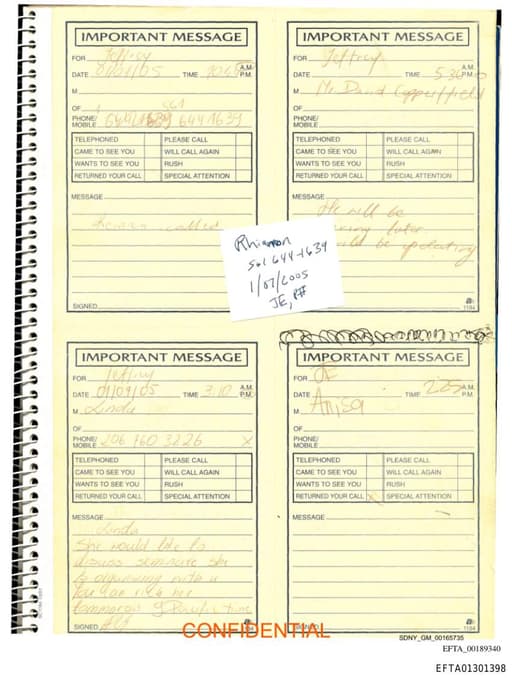 IMPORTANT MESSAGE
FOR Jeffrey
DATE 01/01/05 TIME A.M. P.M.
M
OF
561
PHONE/ MOBILE 644 1639
TELEPHONED PLEASE CALL
CAME TO SEE YOU WILL CALL AGAIN
WANTS TO SEE YOU RUSH
RETURNED YOUR CALL SPECIAL ATTENTION
MESSAGE
called
SIGNED
IMPORTANT MESSAGE
FOR Jeffrey
DATE TIME 5.30 A.M. P.M.
M Mr. David Copperfield
OF
PHONE/ MOBILE
TELEPHONED PLEASE CALL
CAME TO SEE YOU WILL CALL AGAIN
WANTS TO SEE YOU RUSH
RETURNED YOUR CALL SPECIAL ATTENTION
MESSAGE
He will be
later
be
1184
Rhiannon
561 644-1639
2005
JE,
IMPORTANT MESSAGE
FOR Jeffrey
DATE 01/09/05 TIME 3.10 A.M. P.M.
M Linda
OF
PHONE/ MOBILE 206 160 3226 X
TELEPHONED PLEASE CALL
CAME TO SEE YOU WILL CALL AGAIN
WANTS TO SEE YOU RUSH
RETURNED YOUR CALL SPECIAL ATTENTION
MESSAGE
Linda
She would like to
discuss she
is organising with u
You can her
time
SIGNED
IMPORTANT MESSAGE
FOR JE
DATE TIME A.M. P.M.
M Anisa
OF
PHONE/ MOBILE
TELEPHONED PLEASE CALL
CAME TO SEE YOU WILL CALL AGAIN
WANTS TO SEE YOU RUSH
RETURNED YOUR CALL SPECIAL ATTENTION
MESSAGE
SIGNED
1184
CONFIDENTIAL
SDNY_GM_00165735
EFTA_00189340
EFTA01301398